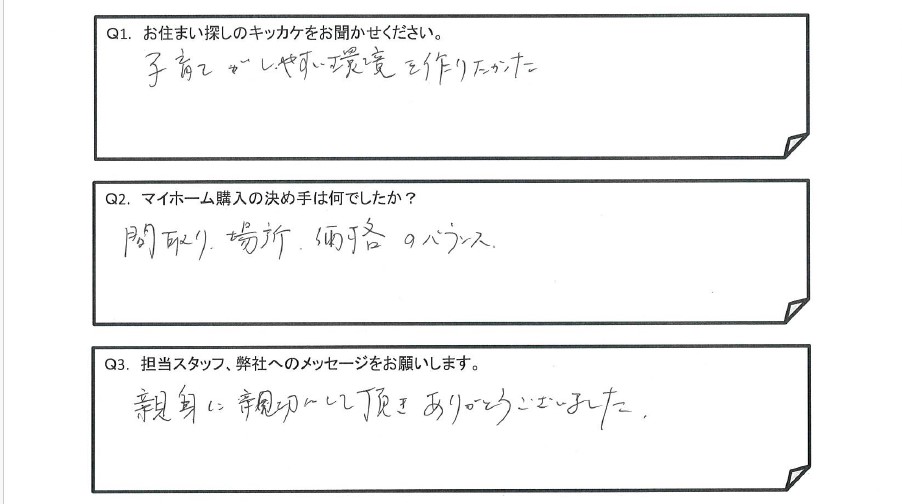 Q1. お住まい探しのキッカケをお聞かせください。
子育てがしやすい環境を作りたかった
Q2. マイホーム購入の決め手は何でしたか？
間取り、場所、価格のバランス、
Q3. 担当スタッフ、弊社へのメッセージをお願いします。
親身に親切にして頂きありがとうございました。